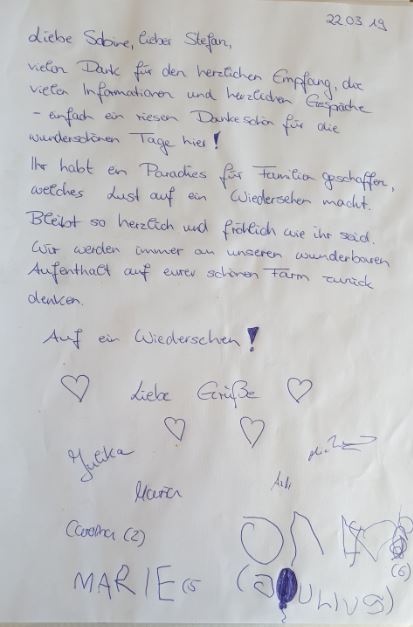 22.03.19
Liebe Sabine, lieber Stefan,
vielen Dank für den herzlichen Empfang, die
vielen Informationen und herzlichen Gespräche
- einfach ein riesen Dankeschön für die
wunderschönen Tage hier!
Ihr habt ein Paradies für Familien geschaffen,
welches Lust auf ein Wiedersehen macht.
Bleibt so herzlich und fröhlich wie ihr seid.
Wir werden immer an unseren wunderbaren
Aufenthalt auf eurer schönen Farm zurück
denken.
Auf ein Wiedersehen!
Liebe Grüße
Julika
Maria
(2)
MARIE (5